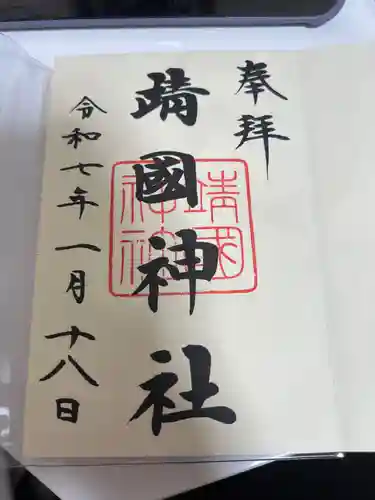 奉拝
靖國神社
靖國神社
令和七年一月十八日